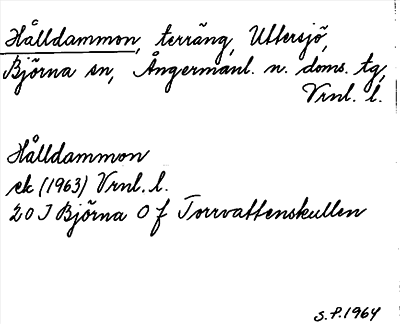 Hålldammon, terräng, Uttersjö,
Björna sn, Ångermanl. n. doms. tg,
Vrnl. l.
Hålldammon
ek (1963) Vrnl. l.
20 J Björna O f Torrvattenskullen
S.P. 1964